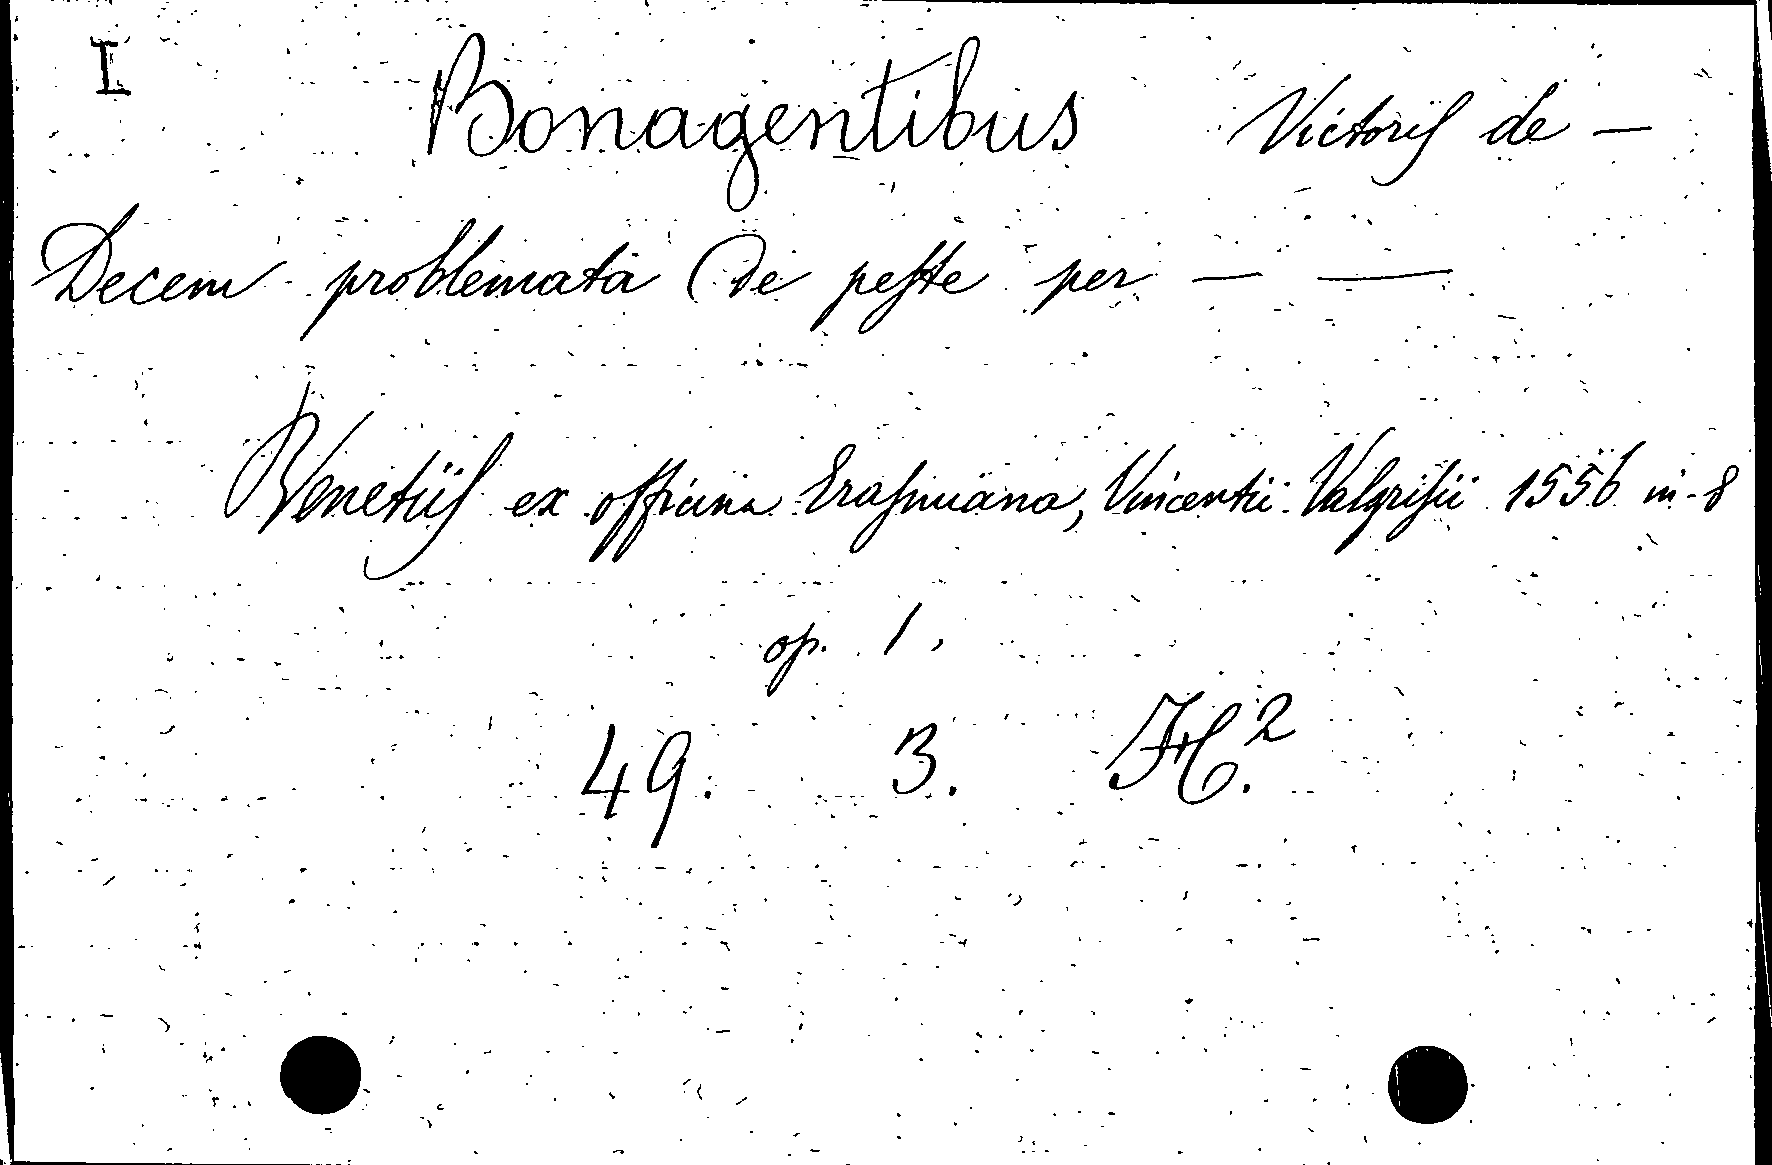 I
Bonagentibus Victoris de —
Decem problemata De peste per — —
Venetiis ex officina Erasmiana, Vincentii Valgrisii 1556 in-8
op. 1.
49. 3. H.2